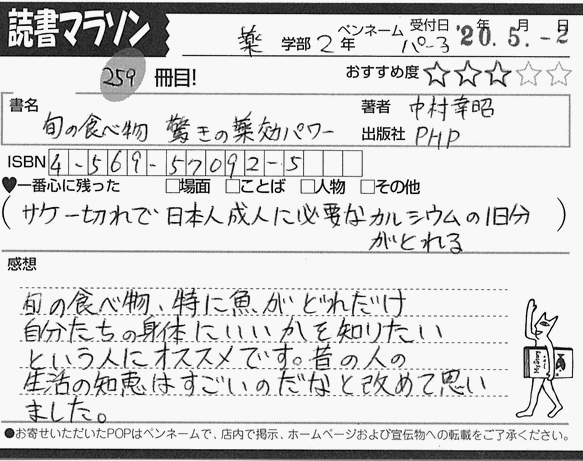 読書マラソン
薬 学部 2 年 ペンネーム パー3 受付日 '20.5.-2 年 月 日
259 冊目! おすすめ度 ★★★☆☆
書名 旬の食べ物 驚きの薬効パワー
著者 中村幸昭
出版社 PHP
ISBN 4-569-57092-5
♥一番心に残った □場面 □ことば □人物 □その他
(サケ一切れで日本人成人に必要なカルシウムの1日分
がとれる)
感想
旬の食べ物、特に魚がどれだけ
自分たちの身体にいいかを知りたい
という人にオススメです。昔の人の
生活の知恵はすごいのだなと改めて思い
ました。
●お寄せいただいたPOPはペンネームで、店内で掲示、ホームページおよび宣伝物への転載をご了承ください。